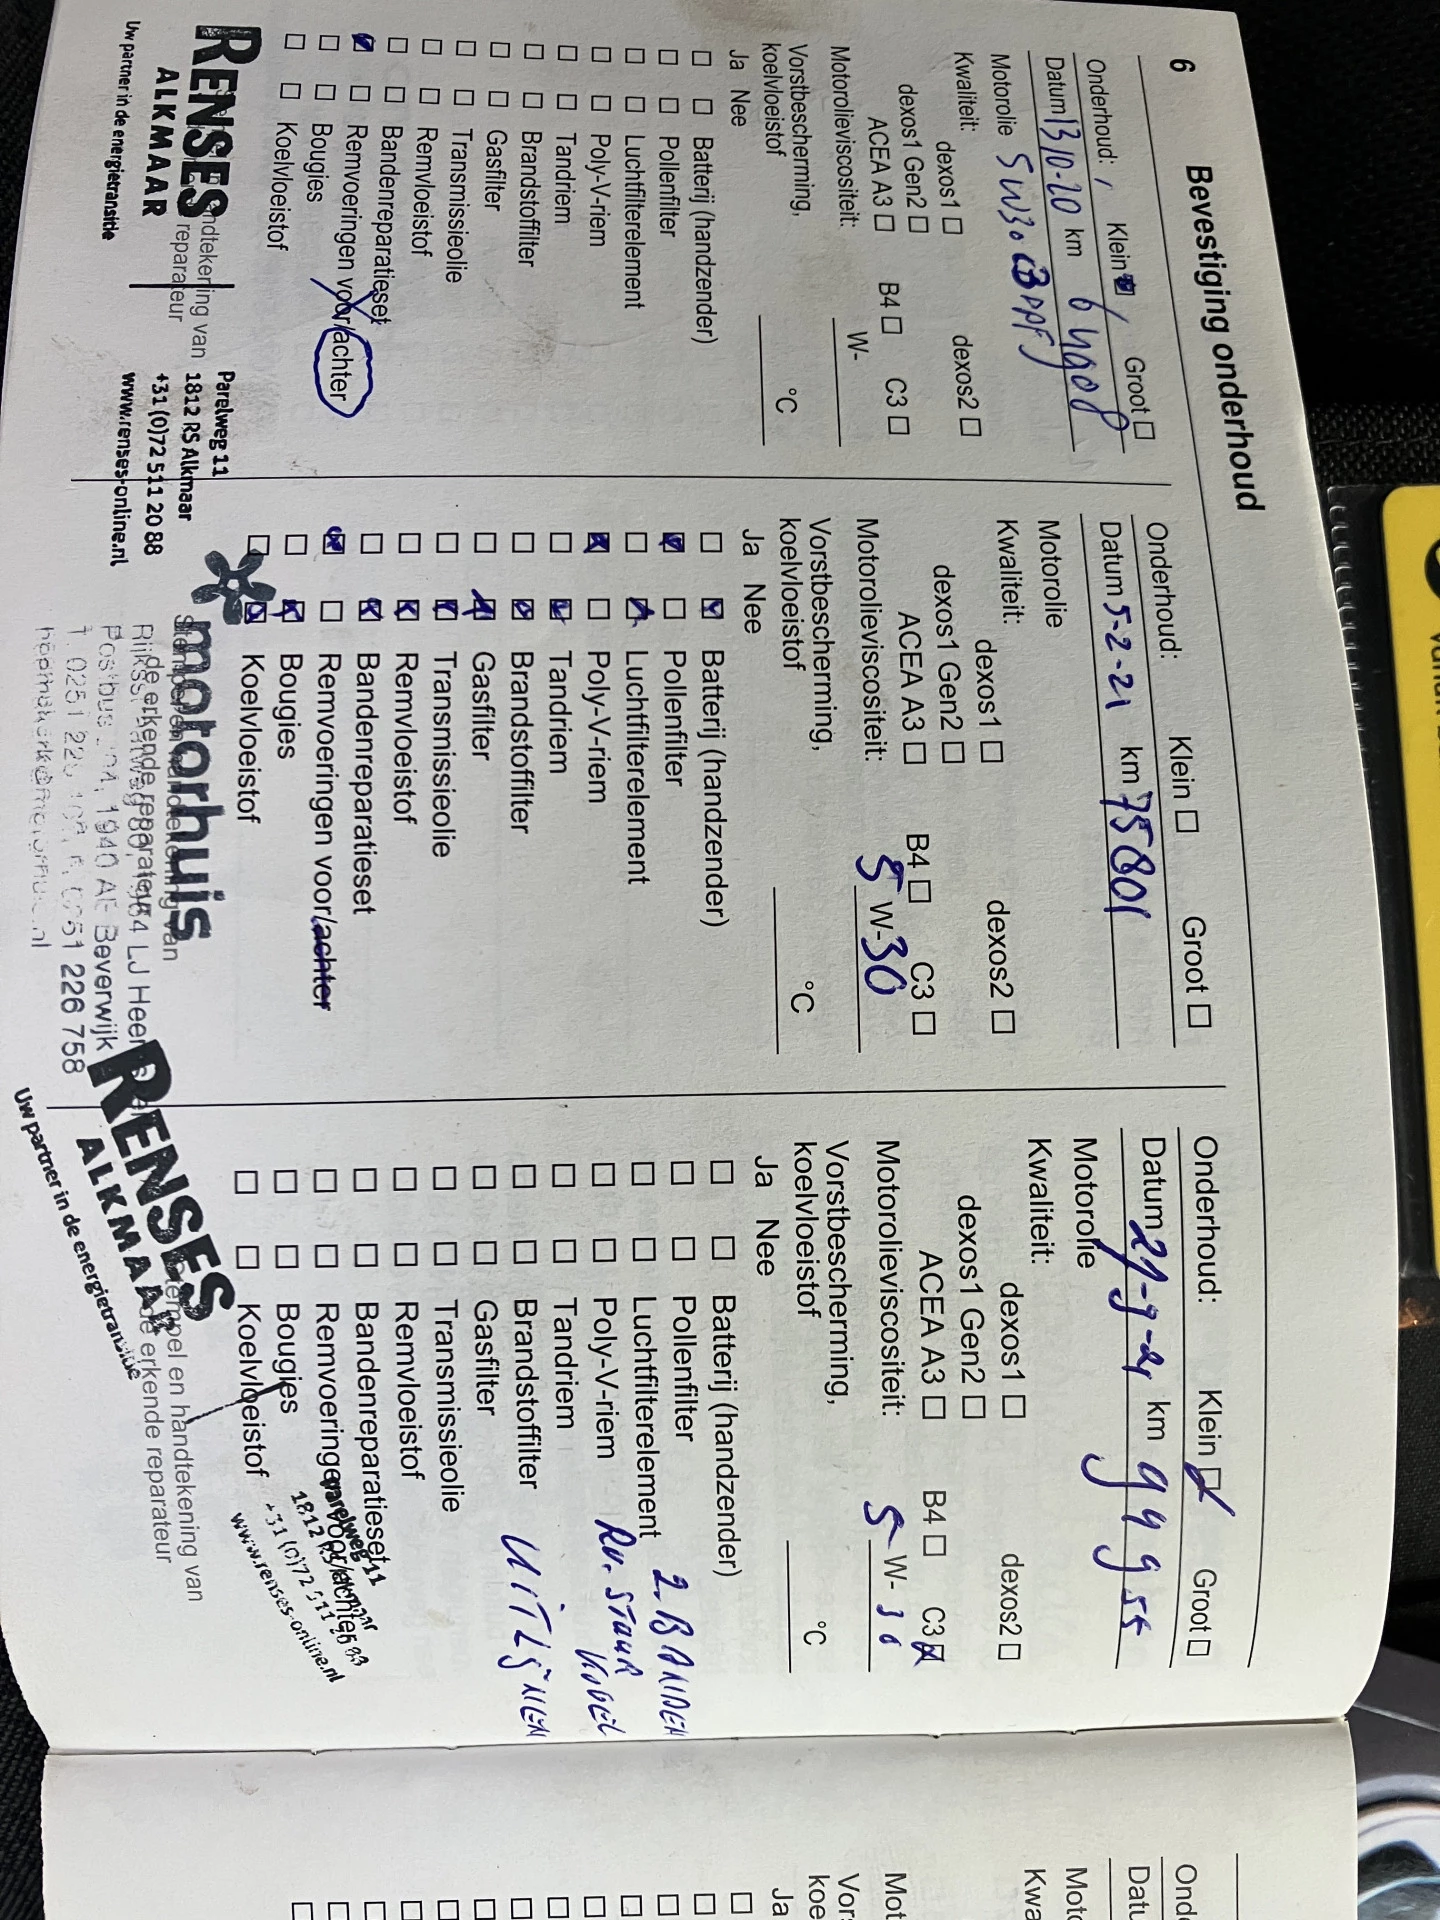 6 Bevestiging onderhoud
Onderhoud: Klein Groot
Datum 13-10-20 km 64908
Motorolie 5W30 C3 DPF
Kwaliteit:
dexos1 dexos2
dexos1 Gen2
ACEA A3 B4 C3
Motorolieviscositeit: W-
Vorstbescherming,
koelvloeistof °C
Ja Nee
Batterij (handzender)
Pollenfilter
Luchtfilterelement
Poly-V-riem
Tandriem
Brandstoffilter
Gasfilter
Transmissieolie
Remvloeistof
Bandenreparatieset
Remvoeringen voor/achter
Bougies
Koelvloeistof
RENSES
ALKMAAR
Uw partner in de energietransitie
Parelweg 11
1812 RS Alkmaar
+31 (0)72 511 20 88
www.renses-online.nl
Onderhoud: Klein Groot
Datum 5-2-21 km 75801
Motorolie
Kwaliteit:
dexos1 dexos2
dexos1 Gen2
ACEA A3 B4 C3
Motorolieviscositeit: 5 W-30
Vorstbescherming,
koelvloeistof °C
Ja Nee
Batterij (handzender)
Pollenfilter
Luchtfilterelement
Poly-V-riem
Tandriem
Brandstoffilter
Gasfilter
Transmissieolie
Remvloeistof
Bandenreparatieset
Remvoeringen voor/achter
Bougies
Koelvloeistof
motorhuis
de erkende reparateur
1940 AE Beverwijk
226 758
Onderhoud: Klein Groot
Datum 29-9-21 km 99955
Motorolie
Kwaliteit:
dexos1 dexos2
dexos1 Gen2
ACEA A3 B4 C3
Motorolieviscositeit: 5 W-30
Vorstbescherming,
koelvloeistof °C
Ja Nee
Batterij (handzender)
Pollenfilter 2. BANDEN
Luchtfilterelement
Poly-V-riem RV. STUUR KOGEL
Tandriem
Brandstoffilter UITLIJNEN
Gasfilter
Transmissieolie
Remvloeistof
Bandenreparatieset
Remvoeringen voor/achter
Bougies
Koelvloeistof
Stempel en handtekening van
de erkende reparateur
RENSES
ALKMAAR
Uw partner in de energietransitie
Parelweg 11
www.renses-online.nl
Onde
Datu
Moto
Kwa
Mot
Vors
koe
Ja